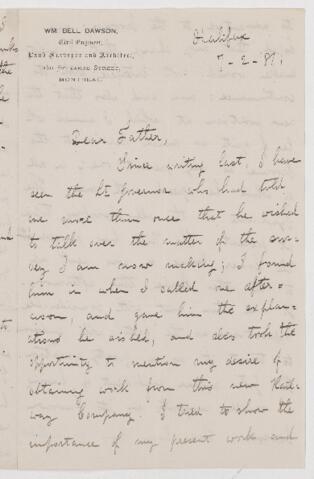 WM BELL DAWSON,
Civil Engineer,
Land Surveyor and Architect,
STREET,
MONTREAL
Halifax
Dear Father,
Since writing last, I have
seen the Lt Governor who had told
me more than once that he wished
to talk over the matter of the sur=
vey I am now making; I found
him in when I called one after=
noon, and gave him the explan=
ations he wished, and also took the
opportunity to mention my desire of
obtaining work from this new Rail=
way Company. I tried to show the
importance of my present work, and